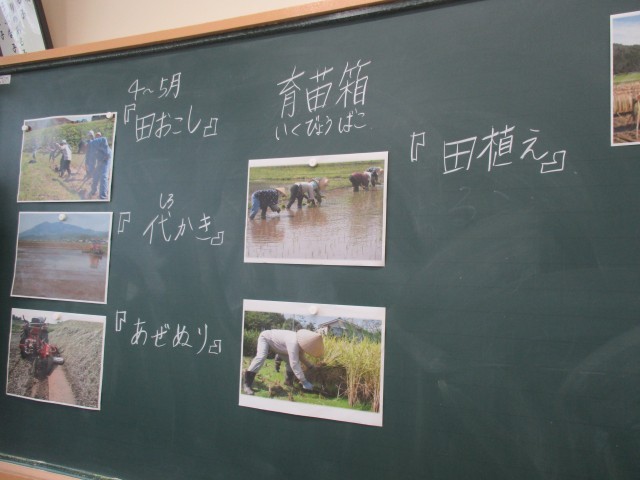 4~5月
『田おこし』
しろ
『代かき』
『あぜぬり』
育苗箱
いくびょうばこ
『田植え』